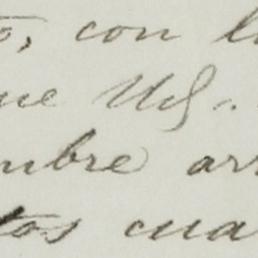 o, con l
ue Ud.
mbre arr
tos cua